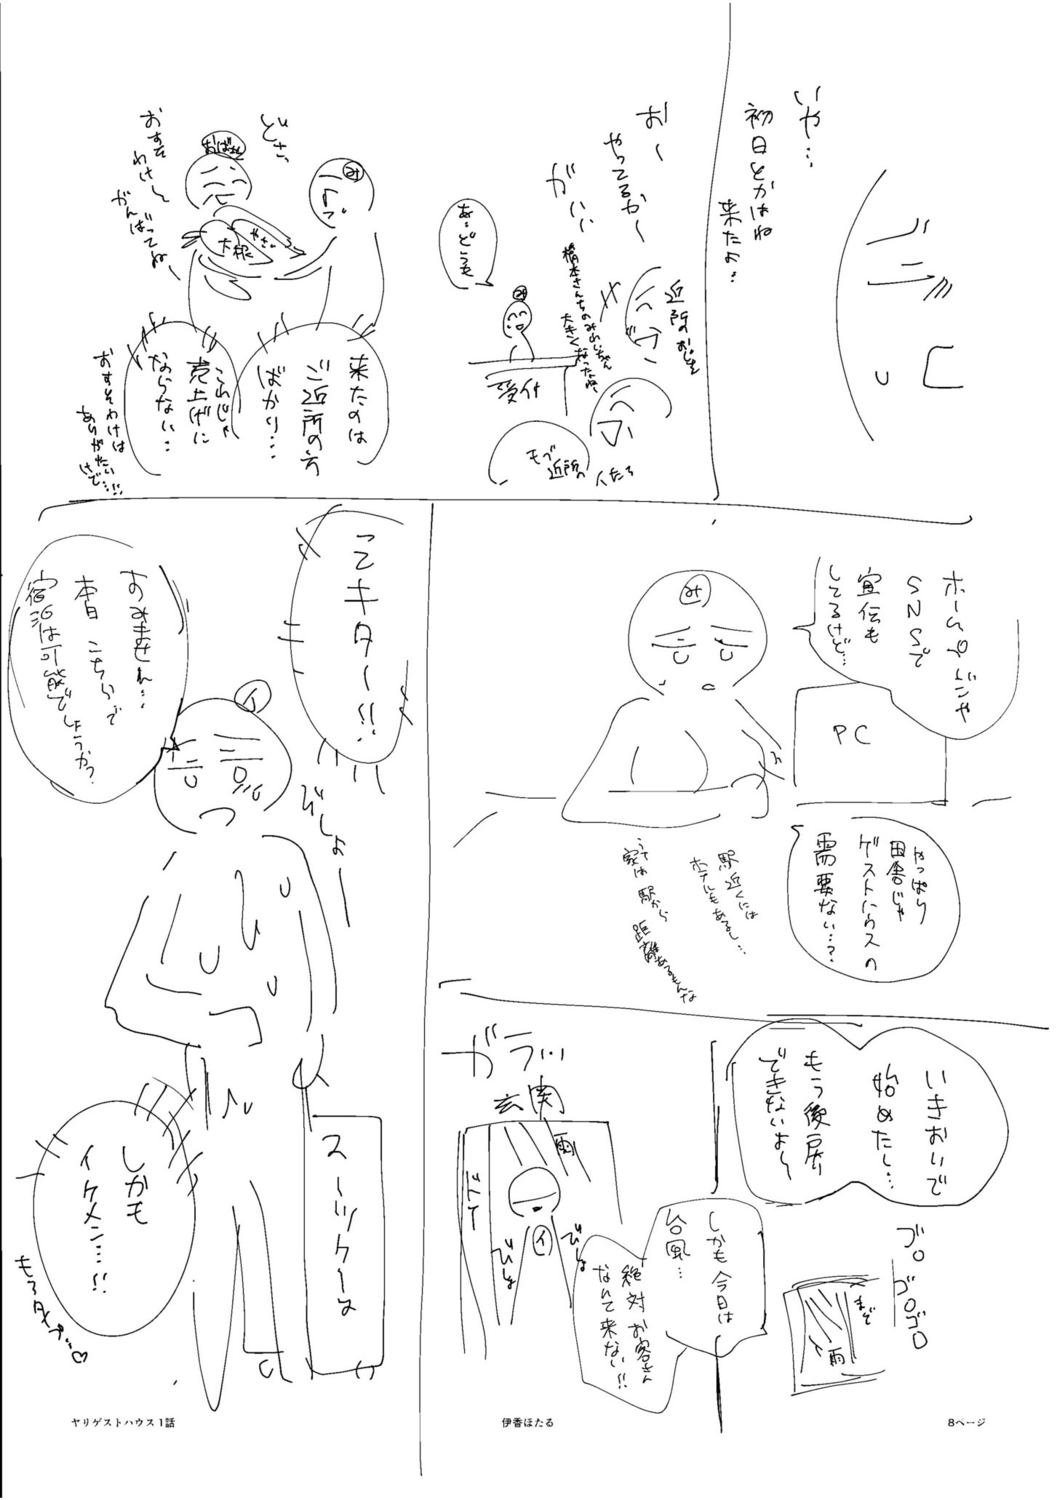 いや…
初日とかはね
来たよ…
お〜
やってるか〜
がい…
近所のおじさん
橋本さんちのみれいちゃん
大きくなったね
あ…どうも
み
受付
モブ近所の
人たち
どさっ
み
おばさん
やさい
大根
おすそ
わけ〜
がんばってね〜
来たのは
ご近所の方
ばかり…
これじゃ
売上げに
ならない…
おすそわけは
ありがたい
けど…!!
ホームページや
SNSで
宣伝も
してるけど…
み
PC
やっぱり
田舎じゃ
ゲストハウスの
需要ない…?
駅近くには
ホテルもあるし…
うちは駅から
距離あるもんな
いきおいで
始めたし…
もう後戻り
できないよ〜
ゴロ
ゴロゴロ
まど
雨
しかも今日は
台風…
絶対お客さん
なんて来ない!!
ガラッ…
玄関
雨
イ
びしょ
びしょ
ってキター!!
すみません…
本日こちらで
宿泊は可能でしょうか?
イ
びしょー
スーツケース
しかも
イケメン…!!
もろタイプ…♡
ヤリゲストハウス1話
伊香ほたる
8ページ